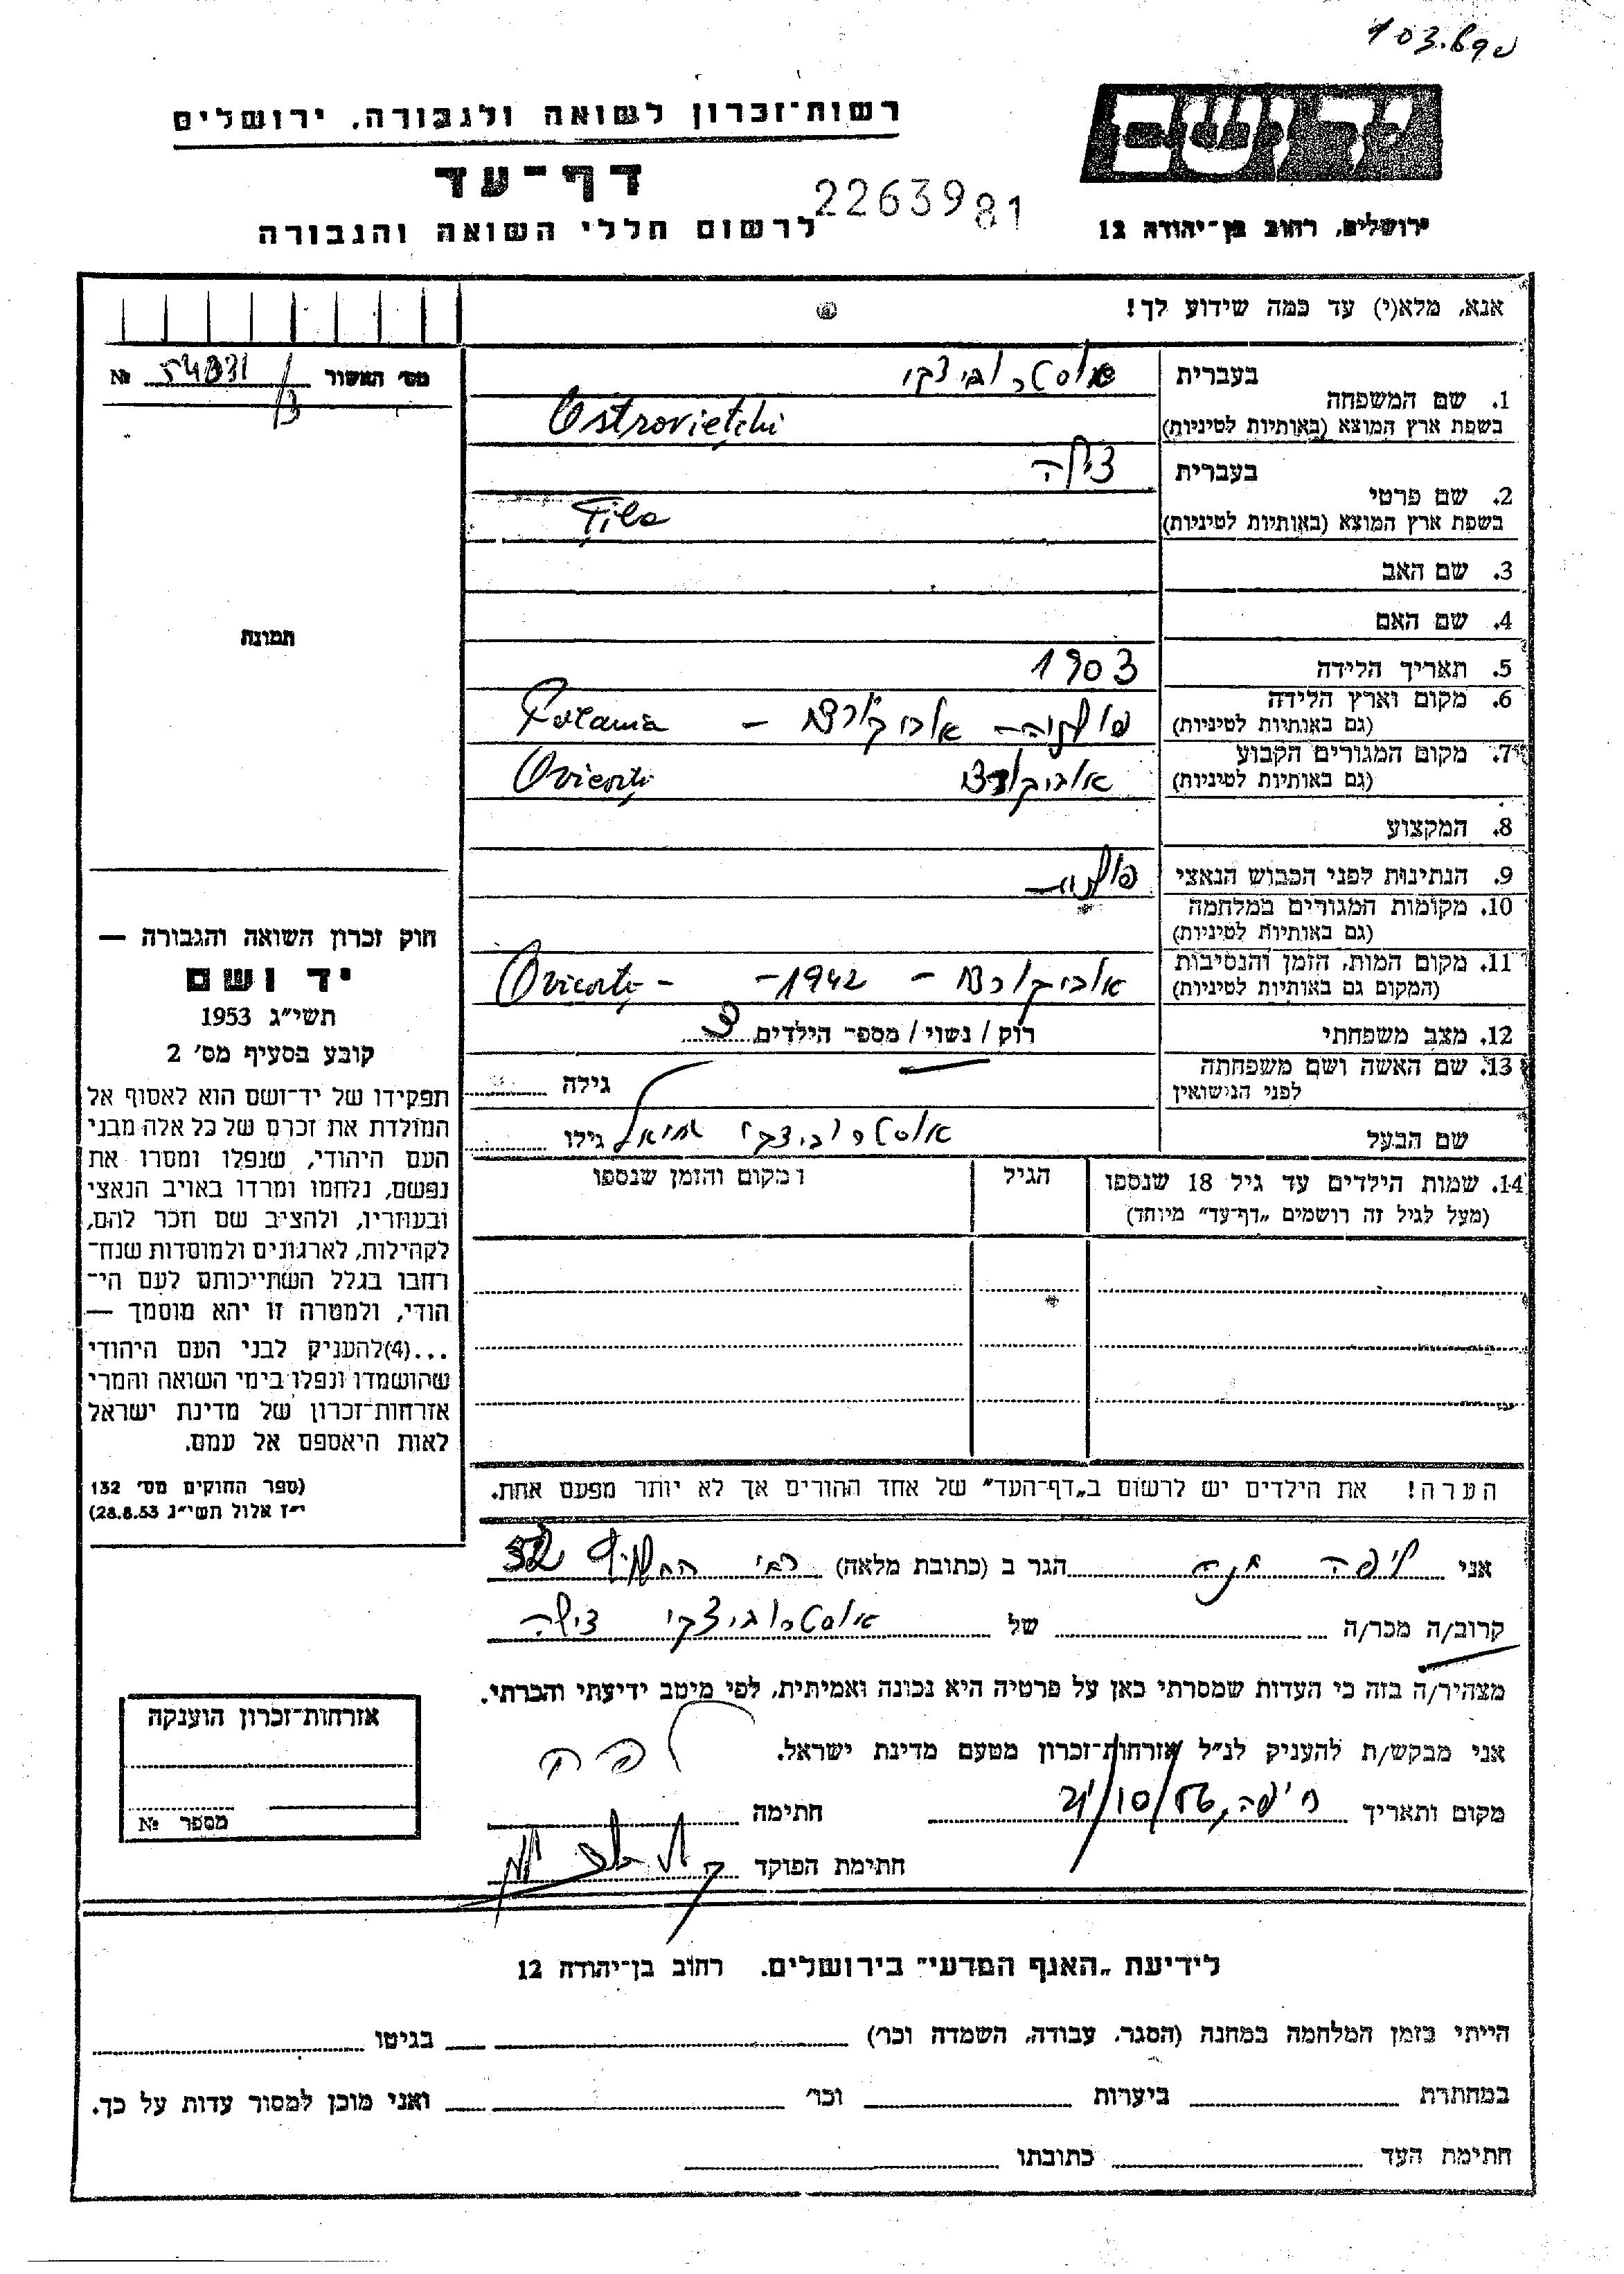 103.680
יד ושם
רשות־זכרון לשואה ולגבורה, ירושלים
דף־עד
2263981
לרשום חללי השואה והגבורה
ירושלים, רחוב בן־יהודה 12
אנא, מלא(י) עד כמה שידוע לך!
מס׳ האשור 54831/3 №
בעברית
אוסטרוביצקי
1. שם המשפחה
בשפת ארץ המוצא (באותיות לטיניות)
Ostrovieţchi
בעברית
צילה
2. שם פרטי
בשפת ארץ המוצא (באותיות לטיניות)
Ţila
3. שם האב
4. שם האם
תמונה
5. תאריך הלידה
1903
6. מקום וארץ הלידה
(גם באותיות לטיניות)
פולניה – Polania
7. מקום המגורים הקבוע
(גם באותיות לטיניות)
8. המקצוע
9. הנתינות לפני הכבוש הנאצי
פולניה
10. מקומות המגורים במלחמה
(גם באותיות לטיניות)
11. מקום המות, הזמן והנסיבות
(המקום גם באותיות לטיניות)
– 1942 –
12. מצב משפחתי
רווק / נשוי / מספר הילדים 3
13. שם האשה ושם משפחתה
לפני הנישואין
גילה
שם הבעל
אוסטרוביצקי
גילו
14. שמות הילדים עד גיל 18 שנספו
(מעל לגיל זה רושמים „דף־עד״ מיוחד)
הגיל
המקום והזמן שנספו
חוק זכרון השואה והגבורה —
יד ושם
תשי״ג 1953
קובע בסעיף מס׳ 2
תפקידו של יד־ושם הוא לאסוף אל
המולדת את זכרם של כל אלה מבני
העם היהודי, שנפלו ומסרו את
נפשם, נלחמו ומרדו באויב הנאצי
ובעוזריו, ולהציב שם וזכר להם,
לקהילות, לארגונים ולמוסדות שנח־
רחבו בגלל השתייכותם לעם הי־
הודי, ולמטרה זו יהא מוסמך —
...(4)להעניק לבני העם היהודי
שהושמדו ונפלו בימי השואה והמרי
אזרחות־זכרון של מדינת ישראל
לאות היאספם אל עמם.
(ספר החוקים מס׳ 132
י״ז אלול תשי״ג 28.8.53)
הערה! את הילדים יש לרשום ב„דף־העד״ של אחד ההורים אך לא יותר מפעם אחת.
אני ליפה חנה הגר ב (כתובת מלאה)
קרוב/ה מכר/ה של אוסטרוביצקי צילה
מצהיר/ה בזה כי העדות שמסרתי כאן על פרטיה היא נכונה ואמיתית, לפי מיטב ידיעתי והכרתי.
אני מבקש/ת להעניק לנ״ל אזרחות־זכרון מטעם מדינת ישראל.
מקום ותאריך חיפה, 21/10/56 חתימה
חתימת הפוקד
אזרחות־זכרון הוענקה
מספר №
לידיעת „האגף המדעי״ בירושלים. רחוב בן־יהודה 12
הייתי בזמן המלחמה במחנה (הסגר, עבודה, השמדה וכו׳) בגיטו
במחתרת ביערות וכו׳ ואני מוכן למסור עדות על כך.
חתימת העד כתובתו